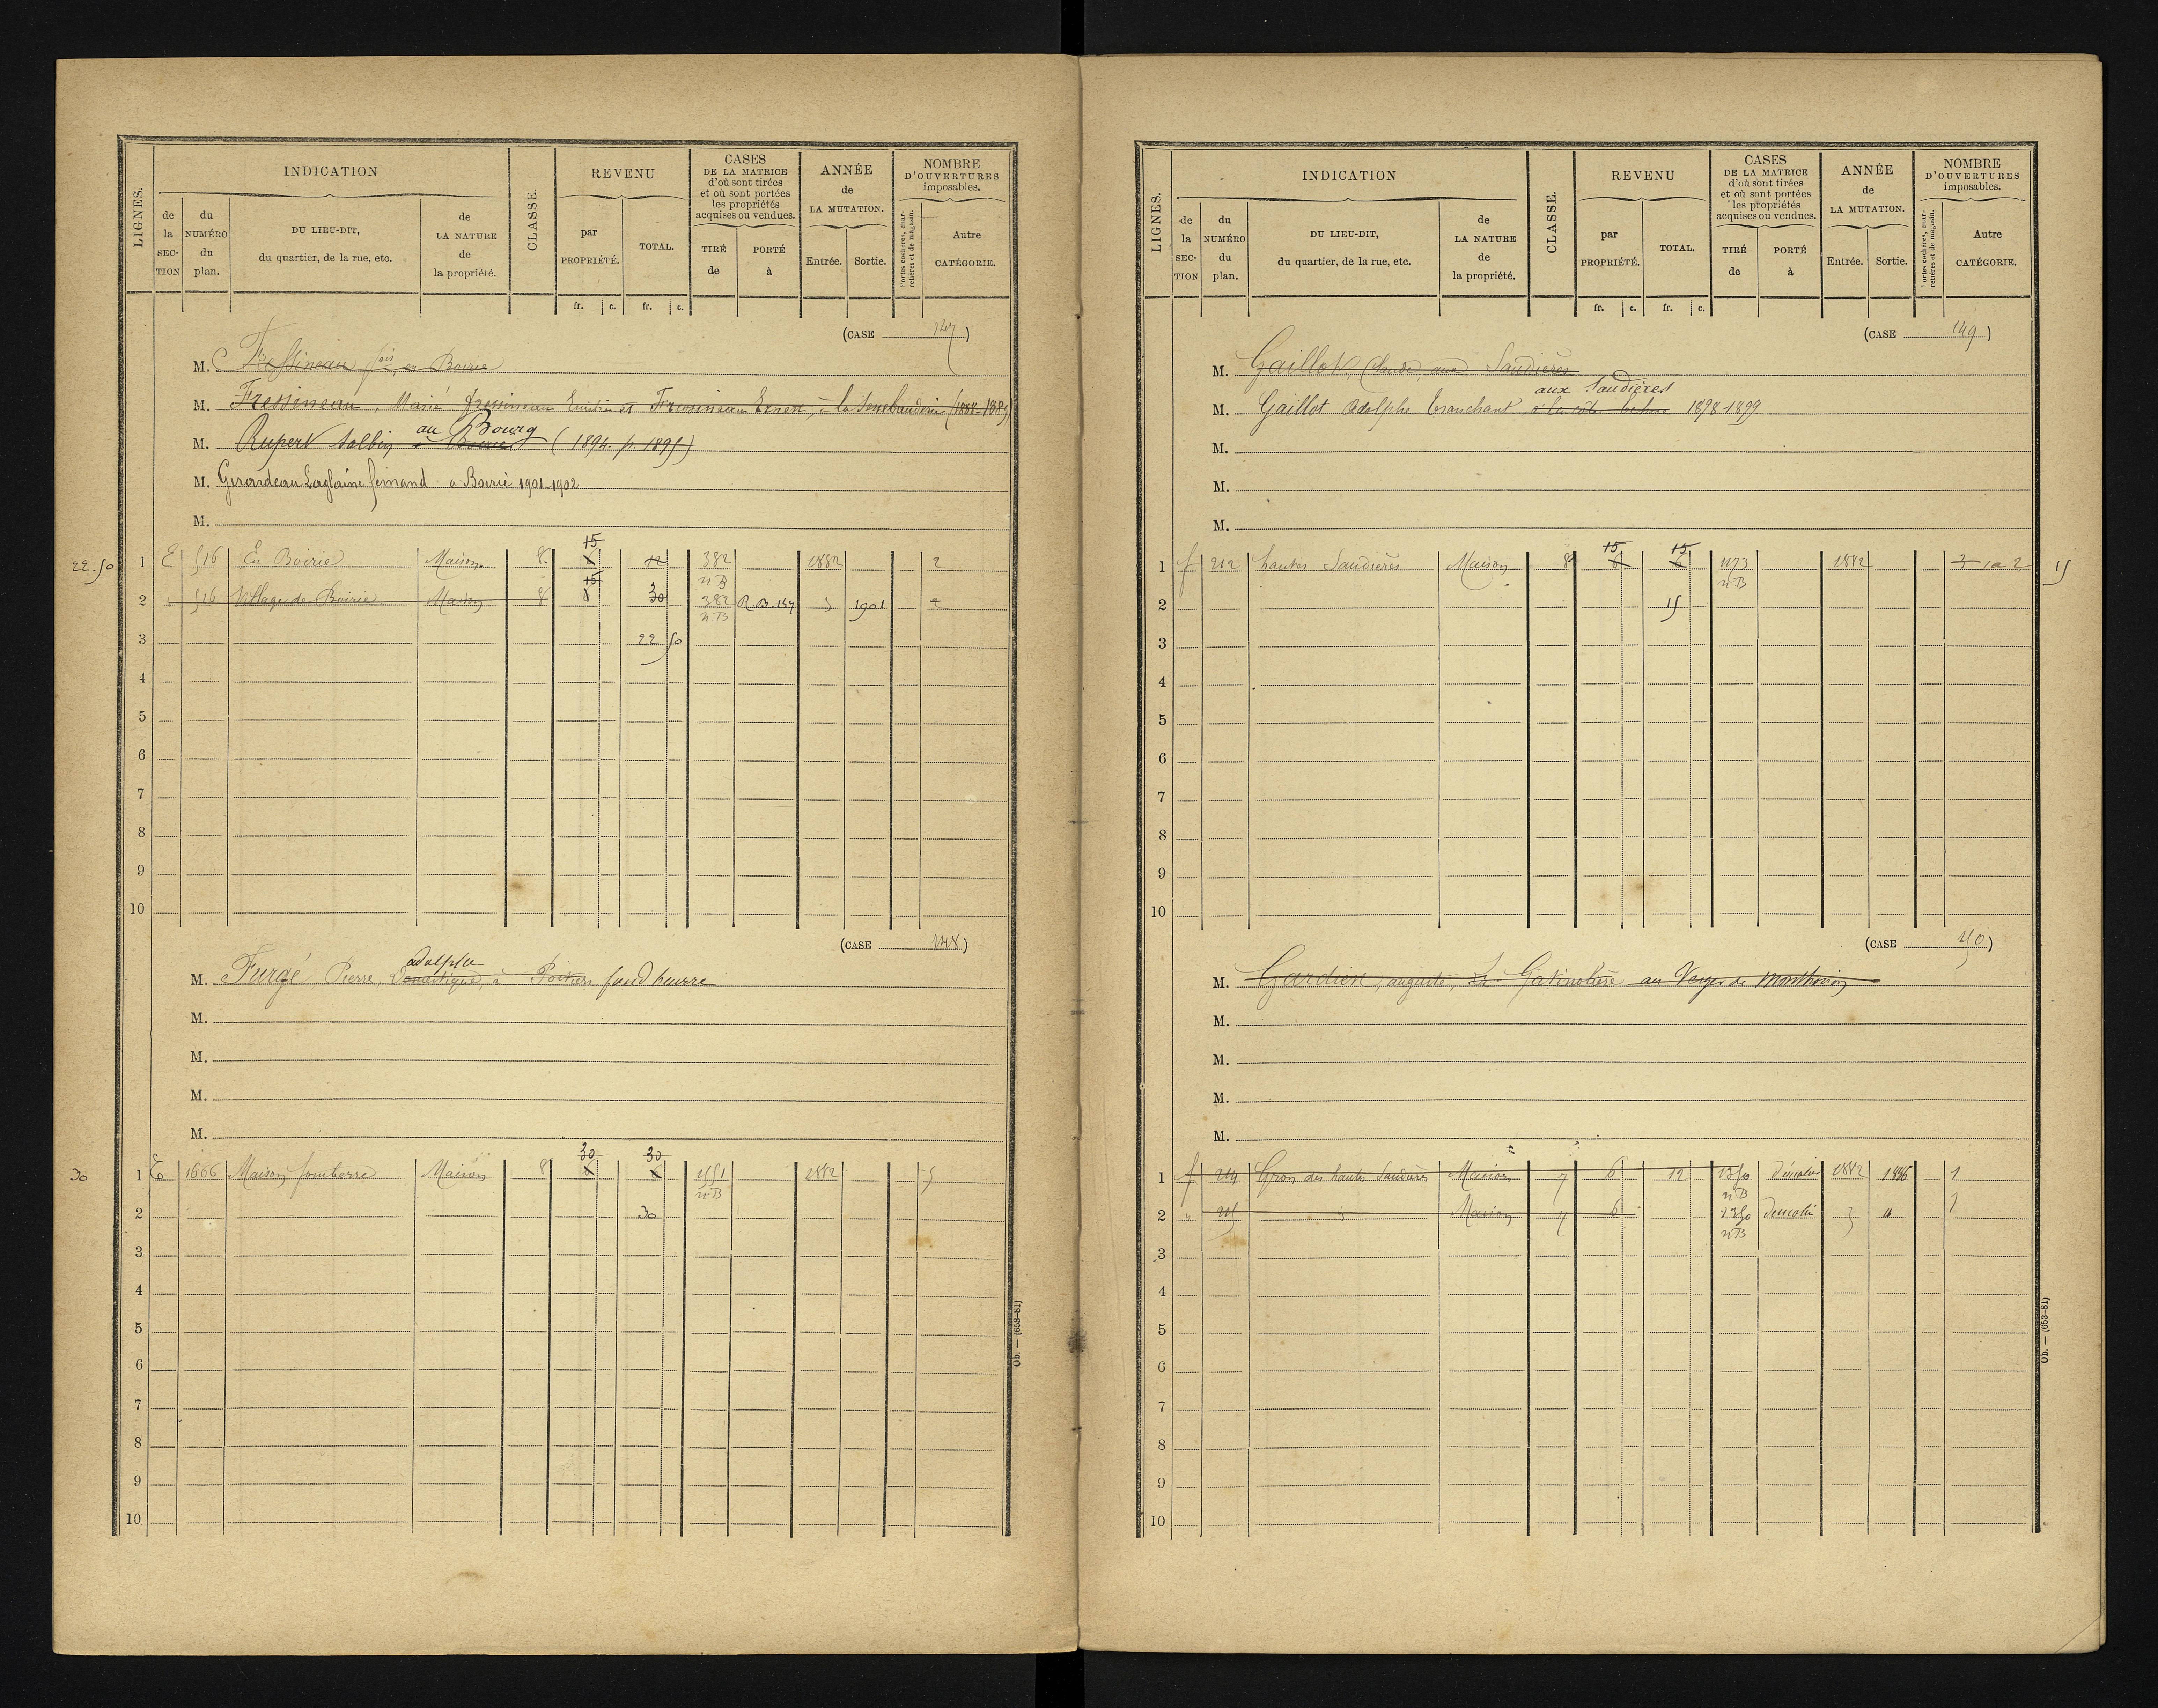 LIGNES.
INDICATION
de la SECTION
du NUMÉRO du plan.
DU LIEU-DIT, du quartier, de la rue, etc.
de LA NATURE de la propriété.
CLASSE.
REVENU
par PROPRIÉTÉ.
TOTAL.
fr. c. fr. c.
CASES DE LA MATRICE d'où sont tirées et où sont portées les propriétés acquises ou vendues.
TIRÉ de
PORTÉ à
ANNÉE de LA MUTATION.
Entrée. Sortie.
NOMBRE D'OUVERTURES imposables.
Portes cochères, charretières et de magasin.
Autre CATÉGORIE.
(CASE 147)
M. Fressineau fois, en Boirie
M. Fressineau, Marie fressineau et Fressineau Ernest, à la
M. Rupert Albin au Bourg (1894 p. 1895)
M. Girardeau Laglaine fernand a Boirie 1901-1902
M.
22.50 1 E 516 En Boirie Maison 8. 15 12 382 nB 1882 2
2 516 Village de Boirie Maison 8 15 30 382 nB R.B. 147 1901 2
3 22 50
4
5
6
7
8
9
10
(CASE 148)
M. Furgé Pierre, adolphe Domestique, à Poitiers fond beurre
M.
M.
M.
M.
30 1 E 1666 Maison Maison 8 30 30 1551 nB 1882 5
2 30
3
4
5
6
7
8
9
10
Ob. — (653-81)
LIGNES.
INDICATION
de la SECTION
du NUMÉRO du plan.
DU LIEU-DIT, du quartier, de la rue, etc.
de LA NATURE de la propriété.
CLASSE.
REVENU
par PROPRIÉTÉ.
TOTAL.
fr. c. fr. c.
CASES DE LA MATRICE d'où sont tirées et où sont portées les propriétés acquises ou vendues.
TIRÉ de
PORTÉ à
ANNÉE de LA MUTATION.
Entrée. Sortie.
NOMBRE D'OUVERTURES imposables.
Portes cochères, charretières et de magasin.
Autre CATÉGORIE.
(CASE 149)
M. Gaillot, Claude, aux Saudières
aux Saudières
M. Gaillot Adolphe tranchant 1898-1899
M.
M.
M.
1 f 212 hautes Saudières Maison 8 15 6 15 6 1173 nB 1882 3 2 15
2 15
3
4
5
6
7
8
9
10
(CASE 150)
M. Gardien, auguste, La Gatinolière au Verger de Monthoiron
M.
M.
M.
M.
1 f 214 des hautes Saudières Maison 7 6 12 1350 nB démolie 1882 1886 1
2 " 215 Maison 7 6 1350 nB démolie " 1
3
4
5
6
7
8
9
10
Ob. — (653-81)